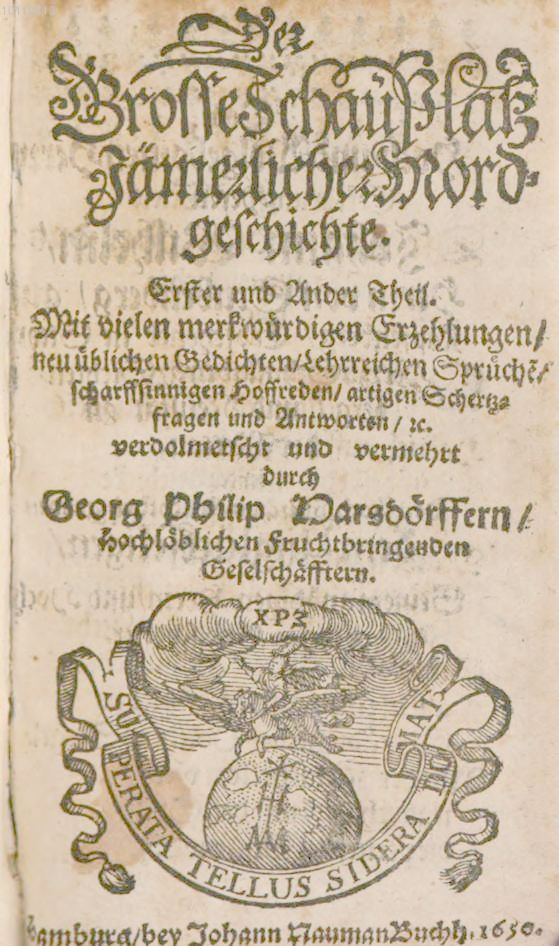 Der
Grosse SchauPlatz
Jämerlicher Mord-
geschichte.
Erster und Ander Theil.
Mit vielen merkwürdigen Erzehlungen/
neu üblichen Gedichten/Lehrreichen Sprüchē/
scharffsinnigen Hoffreden/ artigen Schertz-
fragen und Antworten / ꝛc.
verdolmetscht und vermehrt
durch
Georg Philip Harsdörffern /
Hochlöblichen Fruchtbringenden
Geselschäfftern.
XPS
SUPERATA TELLUS SIDERA DONAT.
Hamburg/bey Johann Nauman Buchh. 1650.